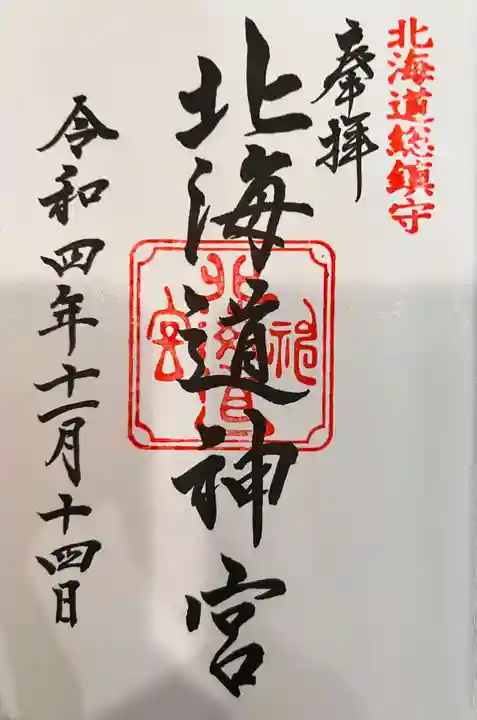 北海道総鎮守
奉拝
北海道神宮
令和四年十一月十四日
北海道神宮